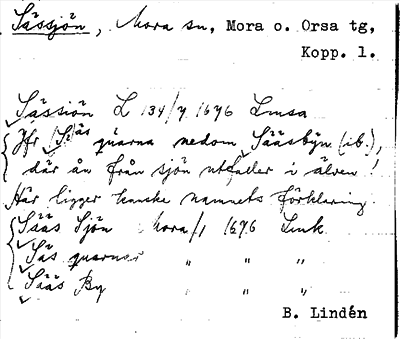 Sässjön, Mora sn, Mora o. Orsa tg,
Kopp. l.
Sässiön L 134/7 1676 Lmsa
Jfr Sääs quarna nedom Sääsbyn (ib.),
där ån från sjön utfaller i älven!
Här ligger kanske namnets förklaring.
Sääs Sjön Mora/1 1676 Lmk
Säs quarner " " "
Sääs By " " "
B. Lindén